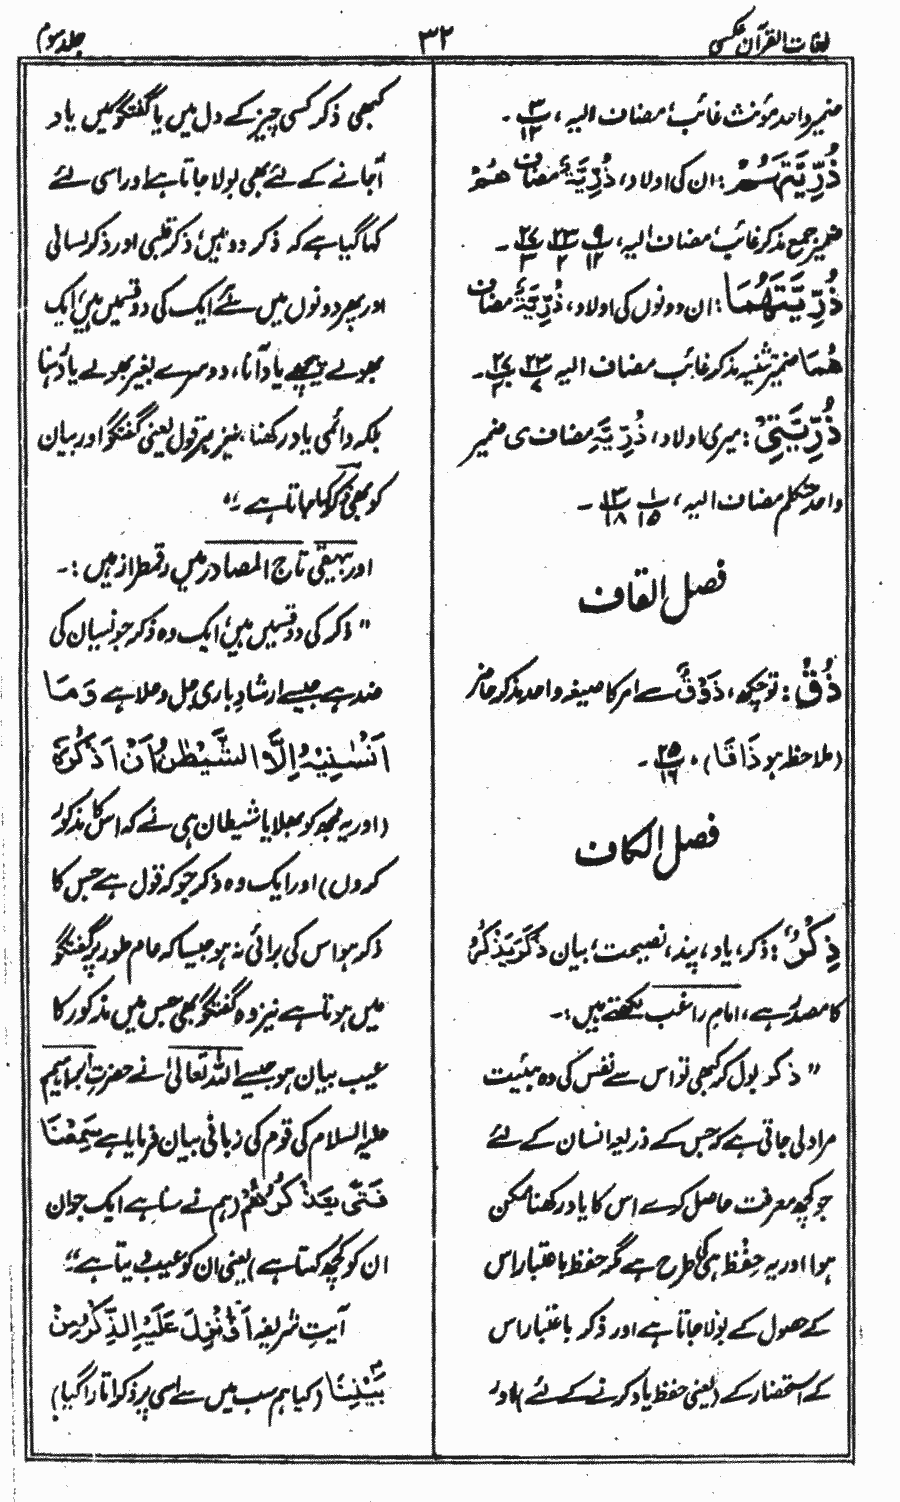 لغات القرآن عکسی
۳۲
جلد سوم
ضمیر واحد مؤنث غائب، مضاف الیہ، ۳/۱۲ ۔
ذُرِّیَّتَہُمْ: ان کی اولاد، ذُرِّیَّۃَ مضاف ھُمْ
ضمیر جمع مذکر غائب، مضاف الیہ، ۹/۱۲ ۲۳/۲ ۲۷/۳ ۔
ذُرِّیَّتَہُمَا: ان دونوں کی اولاد، ذُرِّیَّۃ مضاف
ھُمَا ضمیر تثنیہ مذکر غائب مضاف الیہ ۲۳/۷ ۲۷/۲ ۔
ذُرِّیَّتِیْ: میری اولاد، ذُرِّیَّۃِ مضاف ی ضمیر
واحد متکلم مضاف الیہ، ۱/۱۵ ۱۳/۱۸ ۔
فصل القاف
ذُقْ: تو چکھ، ذَوْقٌ سے امر کا صیغہ واحد مذکر حاضر
(ملاحظہ ہو ذَاقَا)، ۲۵/۱۶ ۔
فصل الکاف
ذِکْرٌ: ذکر، یاد، پند، نصیحت، بیان ذَکَرَ یَذْکُرُ
کا مصدر ہے، امام راغب لکھتے ہیں:۔
” ذکر بول کر کبھی تو اس سے نفس کی وہ ہیئیت
مراد لی جاتی ہے کہ جس کے ذریعہ انسان کے لئے
جو کچھ معرفت حاصل کرے اس کا یاد رکھنا ممکن
ہو، اور یہ حِفْظ ہی کی طرح ہے مگر حفظ باعتبار اس
کے حصول کے بولا جاتا ہے اور ذکر باعتبار اس
کے استحضار کے (یعنی حفظ یاد کرنے کے لئے) اور
کبھی ذکر کسی چیز کے دل میں یا گفتگو میں یاد
آجانے کے لئے بھی بولا جاتا ہے اور اسی لئے
کہا گیا ہے کہ ذکر دو ہیں، ذکر قلبی اور ذکر لسانی
اور پھر دونوں میں سے ایک کی دو قسمیں ہیں، ایک
بھولے پیچھے یاد آنا، دوسرے بغیر بھولے یاد رہنا
بلکہ دائمی یاد رکھنا، نیز ہر قول یعنی گفتگو اور بیان
کو بھی ذکر کہا جاتا ہے ۔“
اور بیہقی تاج المصادر میں رقمطراز ہیں:۔
” ذکر کی دو قسمیں ہیں، ایک وہ ذکر جو نسیان کی
ضد ہے جیسے ارشاد باری جل وعلا ہے وَمَا
اَنْسٰنِیْہُ اِلَّا الشَّیْطٰنُ اَنْ اَذْکُرَہٗ
(اور یہ مجھ کو بھلایا شیطان ہی نے کہ اس کا مذکور
کروں) اور ایک وہ ذکر جو کہ قول ہے جس کا
ذکر ہوا اس کی برائی نہ ہو جیسا کہ عام طور پر گفتگو
میں ہوتا ہے نیز وہ گفتگو بھی جس میں مذکور کا
عیب بیان ہو جیسے اللہ تعالیٰ نے حضرت ابراہیم
علیہ السلام کی قوم کی زبانی بیان فرمایا ہے سَمِعْنَا
فَتًی یَّذْکُرُھُمْ (ہم نے سنا ہے ایک جوان
ان کو کچھ کہتا ہے) یعنی ان کو عیب دیتا ہے ۔“
آیت شریفہ اَءُنْزِلَ عَلَیْہِ الذِّکْرُ مِنْ
بَیْنِنَا (کیا ہم سب میں سے اسی پر ذکر اتارا گیا)